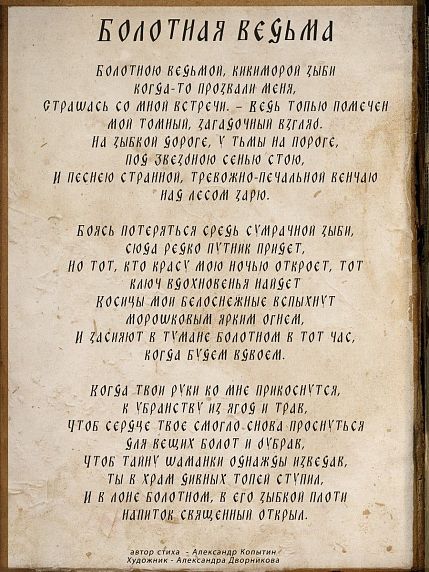 БОЛОТНАЯ ВЕДЬМА
БОЛОТНОЮ ВЕДЬМОЙ, КИКИМОРОЙ ЗЫБИ
КОГДА-ТО ПРОЗВАЛИ МЕНЯ,
СТРАШАСЬ СО МНОЙ ВСТРЕЧИ. – ВЕДЬ ТОПЬЮ ПОМЕЧЕН
МОЙ ТОМНЫЙ, ЗАГАДОЧНЫЙ ВЗГЛЯД.
НА ЗЫБКОЙ ДОРОГЕ, У ТЬМЫ НА ПОРОГЕ,
ПОД ЗВЕЗДНОЮ СЕНЬЮ СТОЮ,
И ПЕСНЕЮ СТРАННОЙ, ТРЕВОЖНО-ПЕЧАЛЬНОЙ ВЕНЧАЮ
НАД ЛЕСОМ ЗАРЮ.
БОЯСЬ ПОТЕРЯТЬСЯ СРЕДЬ СУМРАЧНОЙ ЗЫБИ,
СЮДА РЕДКО ПУТНИК ПРИДЕТ,
НО ТОТ, КТО КРАСУ МОЮ НОЧЬЮ ОТКРОЕТ, ТОТ
КЛЮЧ ВДОХНОВЕНЬЯ НАЙДЕТ
КОСИЦЫ МОИ БЕЛОСНЕЖНЫЕ ВСПЫХНУТ
МОРОШКОВЫМ ЯРКИМ ОГНЕМ,
И ЗАСИЯЮТ В ТУМАНЕ БОЛОТНОМ В ТОТ ЧАС,
КОГДА БУДЕМ ВДВОЕМ.
КОГДА ТВОИ РУКИ КО МНЕ ПРИКОСНУТСЯ,
К УБРАНСТВУ ИЗ ЯГОД И ТРАВ,
ЧТОБ СЕРДЦЕ ТВОЕ СМОГЛО СНОВА ПРОСНУТЬСЯ
ДЛЯ ВЕЩИХ БОЛОТ И ДУБРАВ,
ЧТОБ ТАЙНУ ШАМАНКИ ОДНАЖДЫ ИЗВЕДАВ,
ТЫ В ХРАМ ДИВНЫХ ТОПЕЙ СТУПИЛ,
И В ЛОНЕ БОЛОТНОМ, В ЕГО ЗЫБКОЙ ПЛОТИ
НАПИТОК СВЯЩЕННЫЙ ОТКРЫЛ.
автор стиха - Александр Копытин
Художник - Александра Дворникова